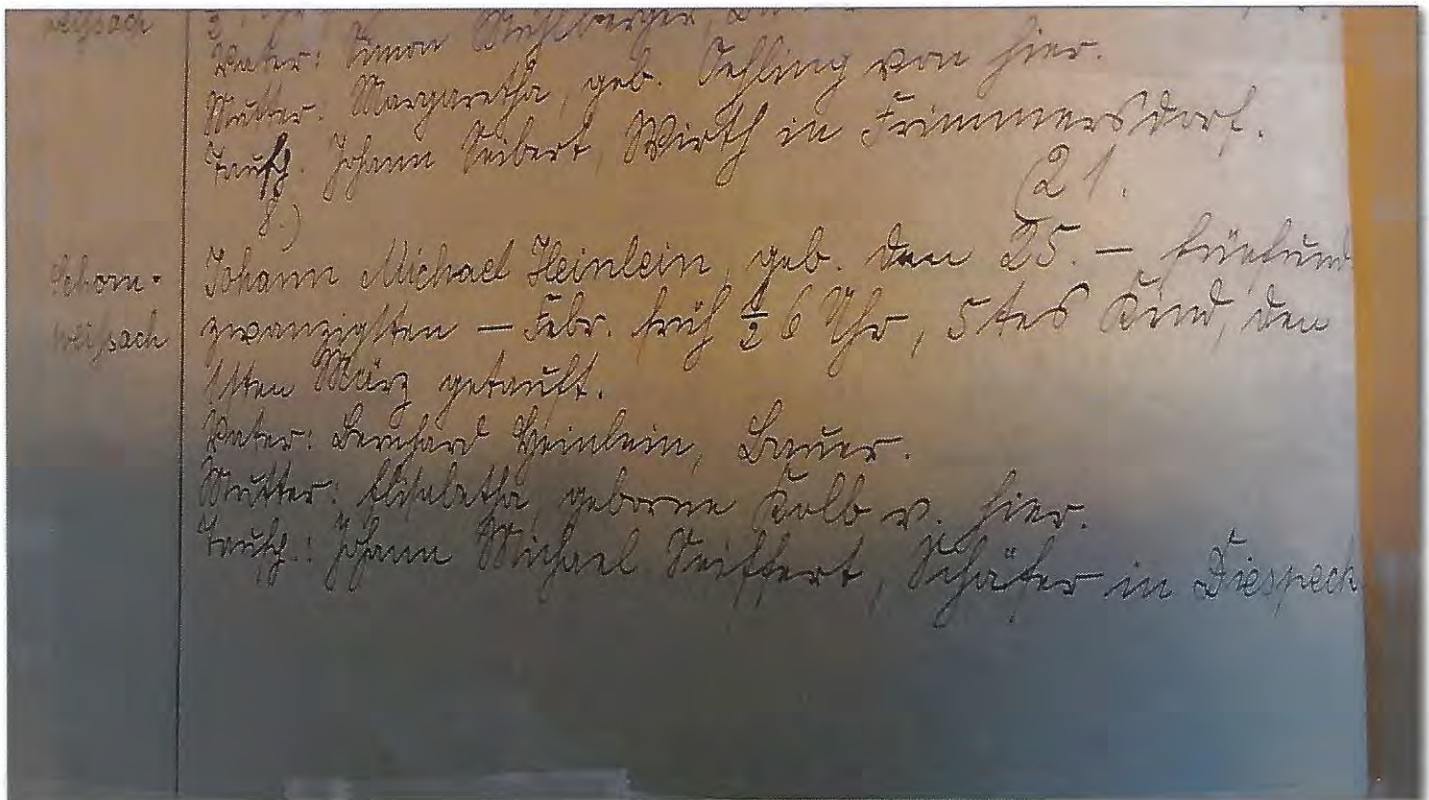 weisach
Vater: Simon Stuhlberger,
Mutter: Margaretha, geb. Oehling von hier.
Taufz. Johann Seibert, Wirth in Frimmersdorf.
(21.
8.)
Schorn-
weisach
Johann Michael Heinlein, geb. den 25. – fünfund
zwanzigsten – Febr. früh ½ 6 Uhr, 5tes Kind, den
1sten März getauft.
Vater: Bernhard Heinlein, Bauer.
Mutter: Elisabetha, geborne Kolb v. hier.
Taufz.: Johann Michael Seiffert, Schäfer in Diespeck